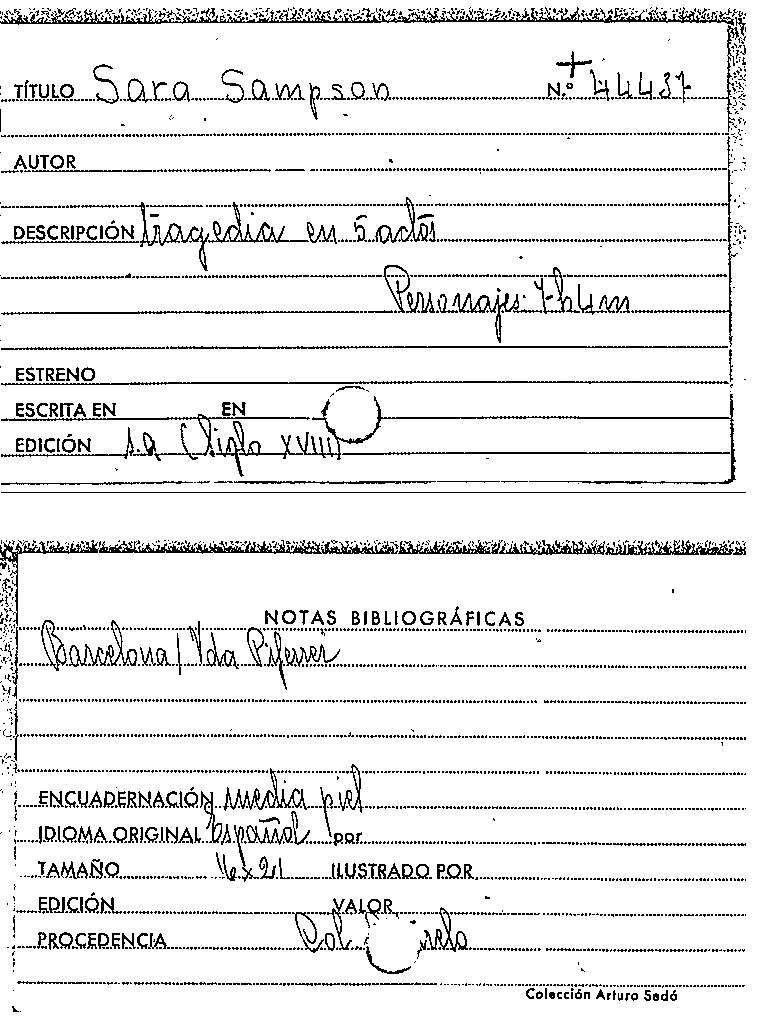 TÍTULO Sara Sampson N.º 44437
AUTOR
DESCRIPCIÓN tragedia en 5 actos
Personajes: 7-h 4 m
ESTRENO
ESCRITA EN EN
EDICIÓN s.a (Siglo XVIII)
NOTAS BIBLIOGRÁFICAS
Barcelona / Vda Piferrer
ENCUADERNACIÓN media piel
IDIOMA ORIGINAL Español por
TAMAÑO 16 x 21 ILUSTRADO POR
EDICIÓN VALOR
PROCEDENCIA Col
Colección Arturo Sedó